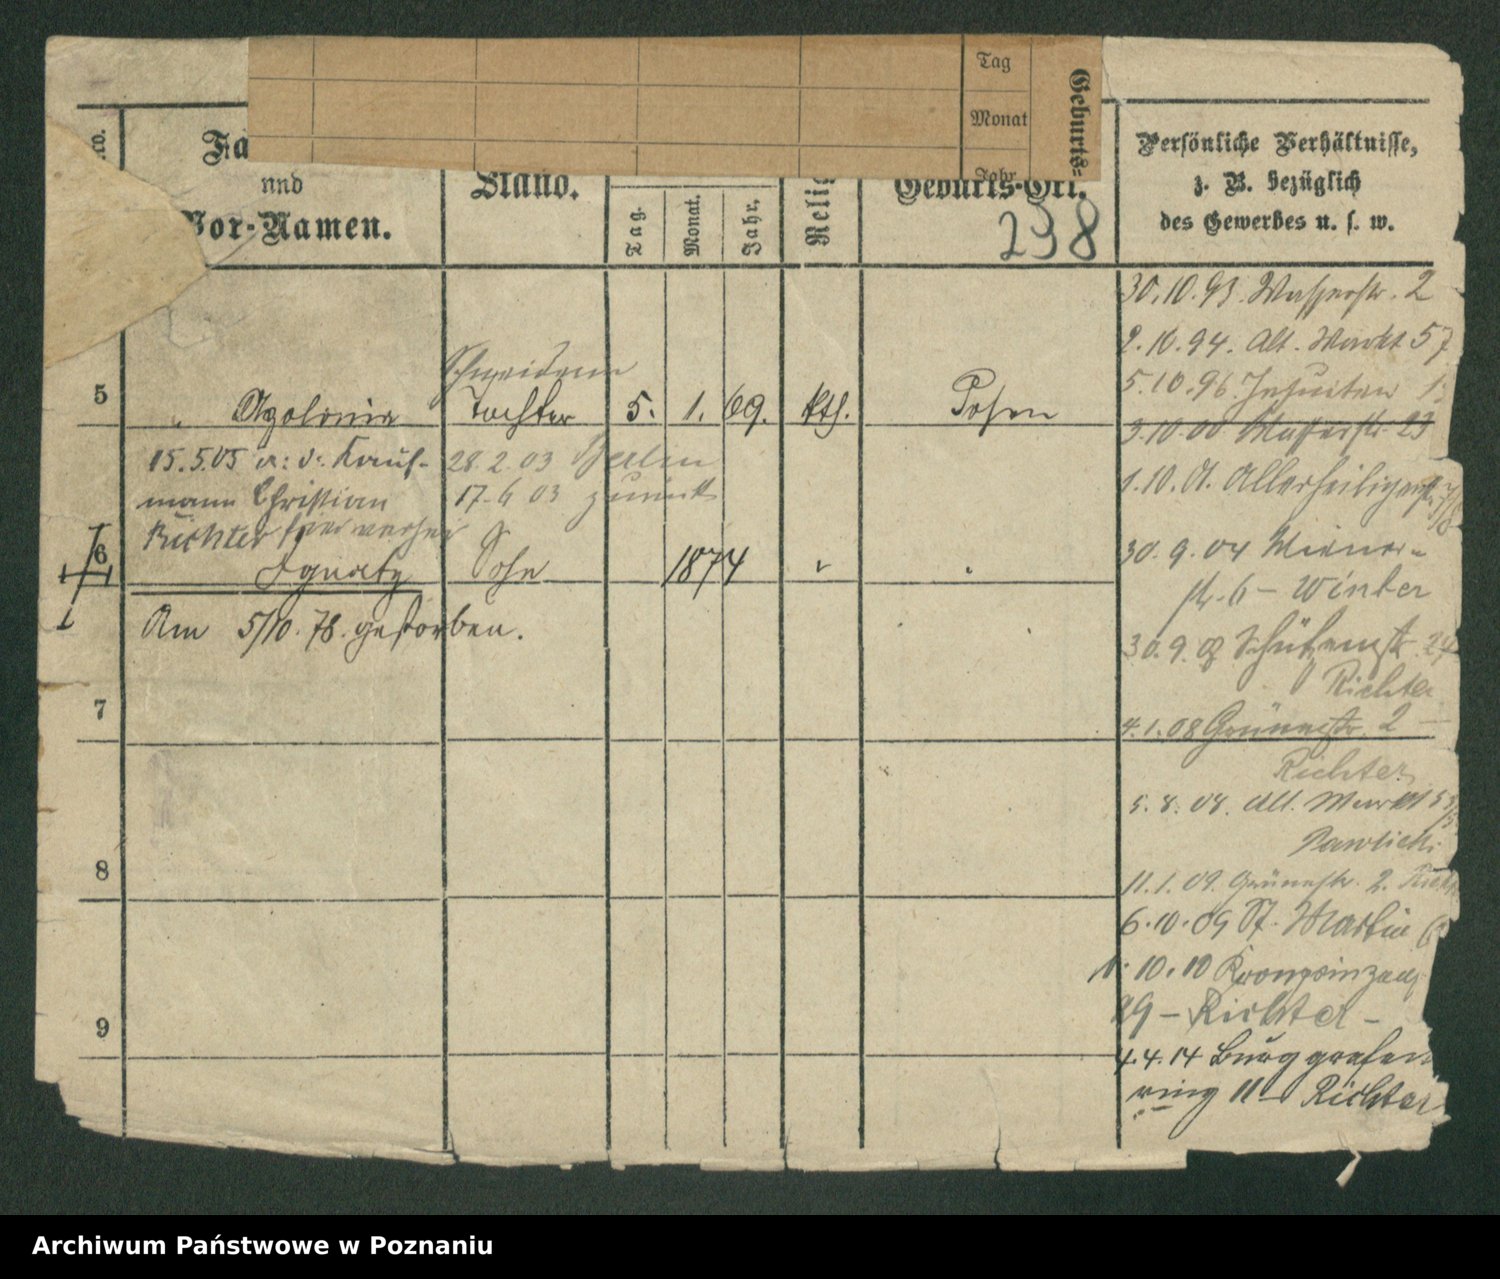 Tag
Monat
Jahr
Geburts-
Fa
und
Vor-Namen.
Stand.
Tag.
Monat.
Jahr.
Relig
Geburts-Ort.
238
Persönliche Verhältnisse,
z. B. bezüglich
des Gewerbes u. s. w.
5
Schneiderin
" Apolonia Tochter 5. 1. 69. kth. Posen
15.5.05 a: d: Kauf-
mann Christian
Richter hier verhei
28.2.03 Berlin
17.6 03 zurück
6
Ignatz Sohn 1874 "
Am 5/10. 78. gestorben.
7
8
9
30.10.93. Wasserstr. 2
2.10.94. Alt. Markt 57
5.10.96. Jesuiten 1
3.10 00 Wasserstr. 23
1.10.01. Allerheiligenstr.
30.9.04 Wiener-
str. 6 – Winter
30.9. Schützenstr. 24
Richter
4.1.08 Grünestr. 2 –
Richter
5.8.08. Alt. Markt
Pawlicki
11.1.09. Grünestr. 2.
6.10.09 St. Martin
1.10.10 Kronprinzen
29 – Richter –
4.4.14 Burggrafen
ring 11 – Richter
Archiwum Państwowe w Poznaniu